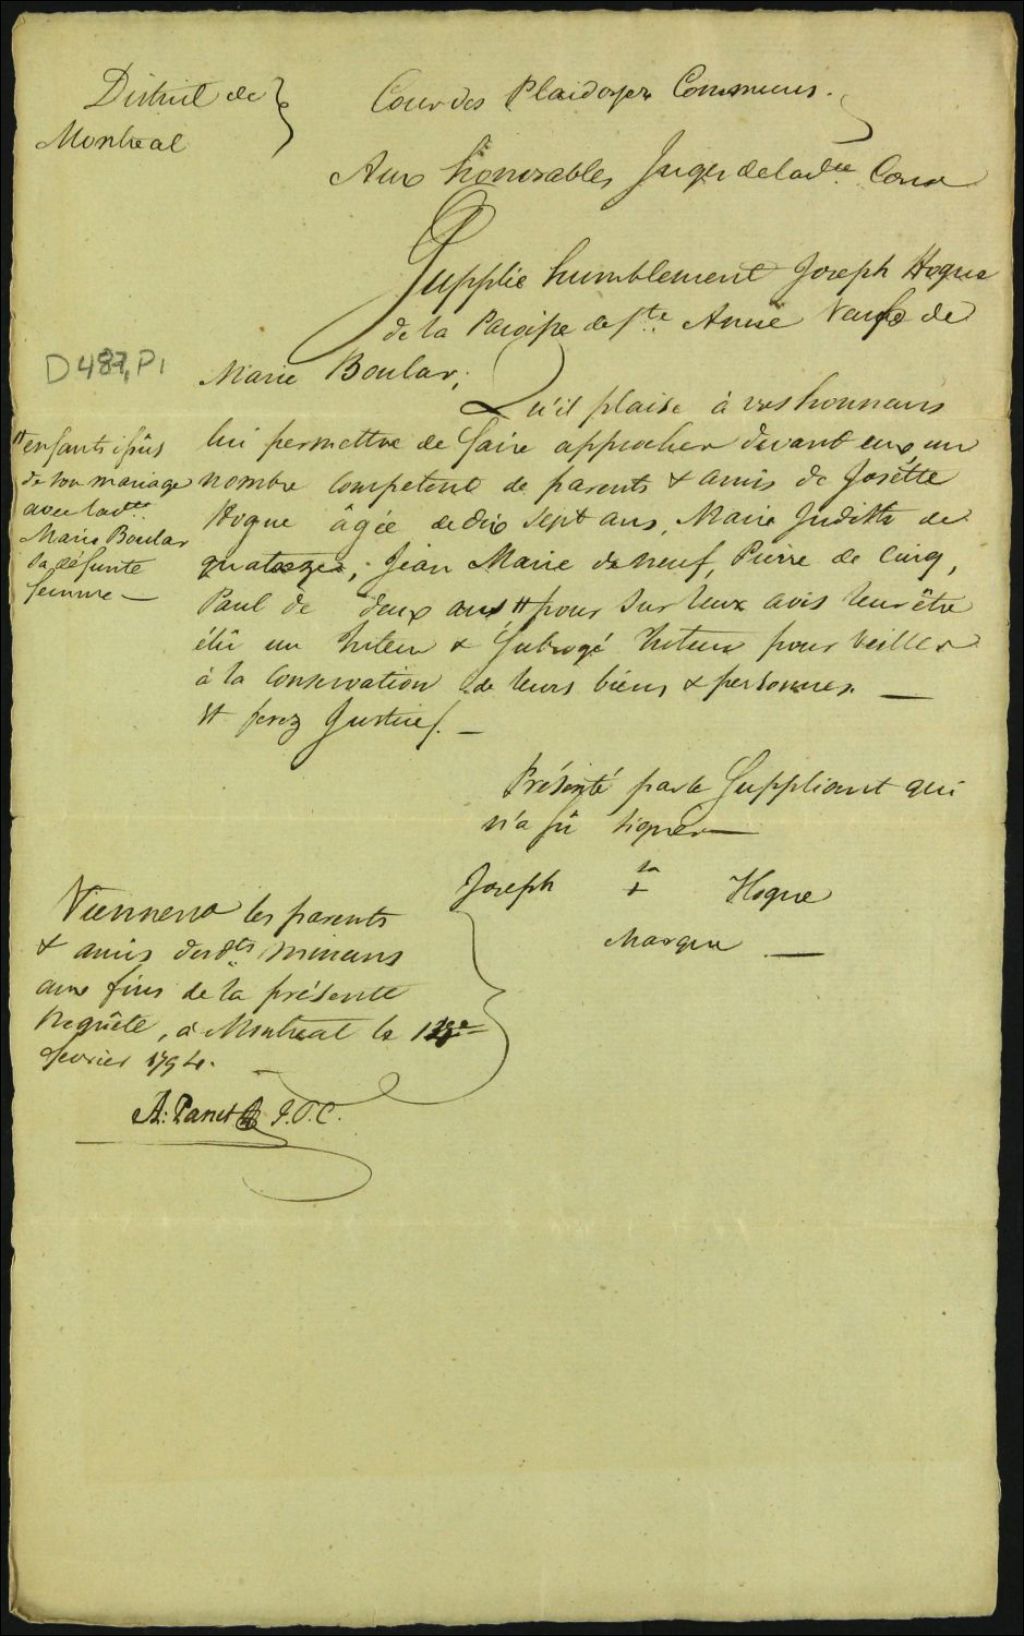 District de
Montreal
Cour des Plaidoyers Communs.
Aux honorables Juges de lad.te Cour
Supplie humblement Joseph Hogue
de la Paroisse de Ste. Anne Veuf de
D487, P1
Marie Boular,
Qu'il plaise à vos honneurs
lui permettre de faire approcher devant eux un
nombre competent de parents & amis de Josette
Hogue âgée de dix sept ans, Marie Judith de
quatorze, Jean Marie de neuf, Pierre de Cinq,
Paul de deux ans # pour sur leur avis leur être
élû un tuteur & Subrogé tuteur pour veiller
à la Conservation de leurs biens & personnes. —
Et ferez Justice. —
# enfants issûs
de son mariage
avec lad.te
Marie Boular
sa défunte
femme —
Présenté par le Suppliant qui
n'a sû signer —
Joseph sa + Hogue
Marque —
Viennent les parents
& amis desd.ts mineurs
aux fins de la présente
Requête, à Montreal le
fevrier 1794. —
A: Panet J.P.C.